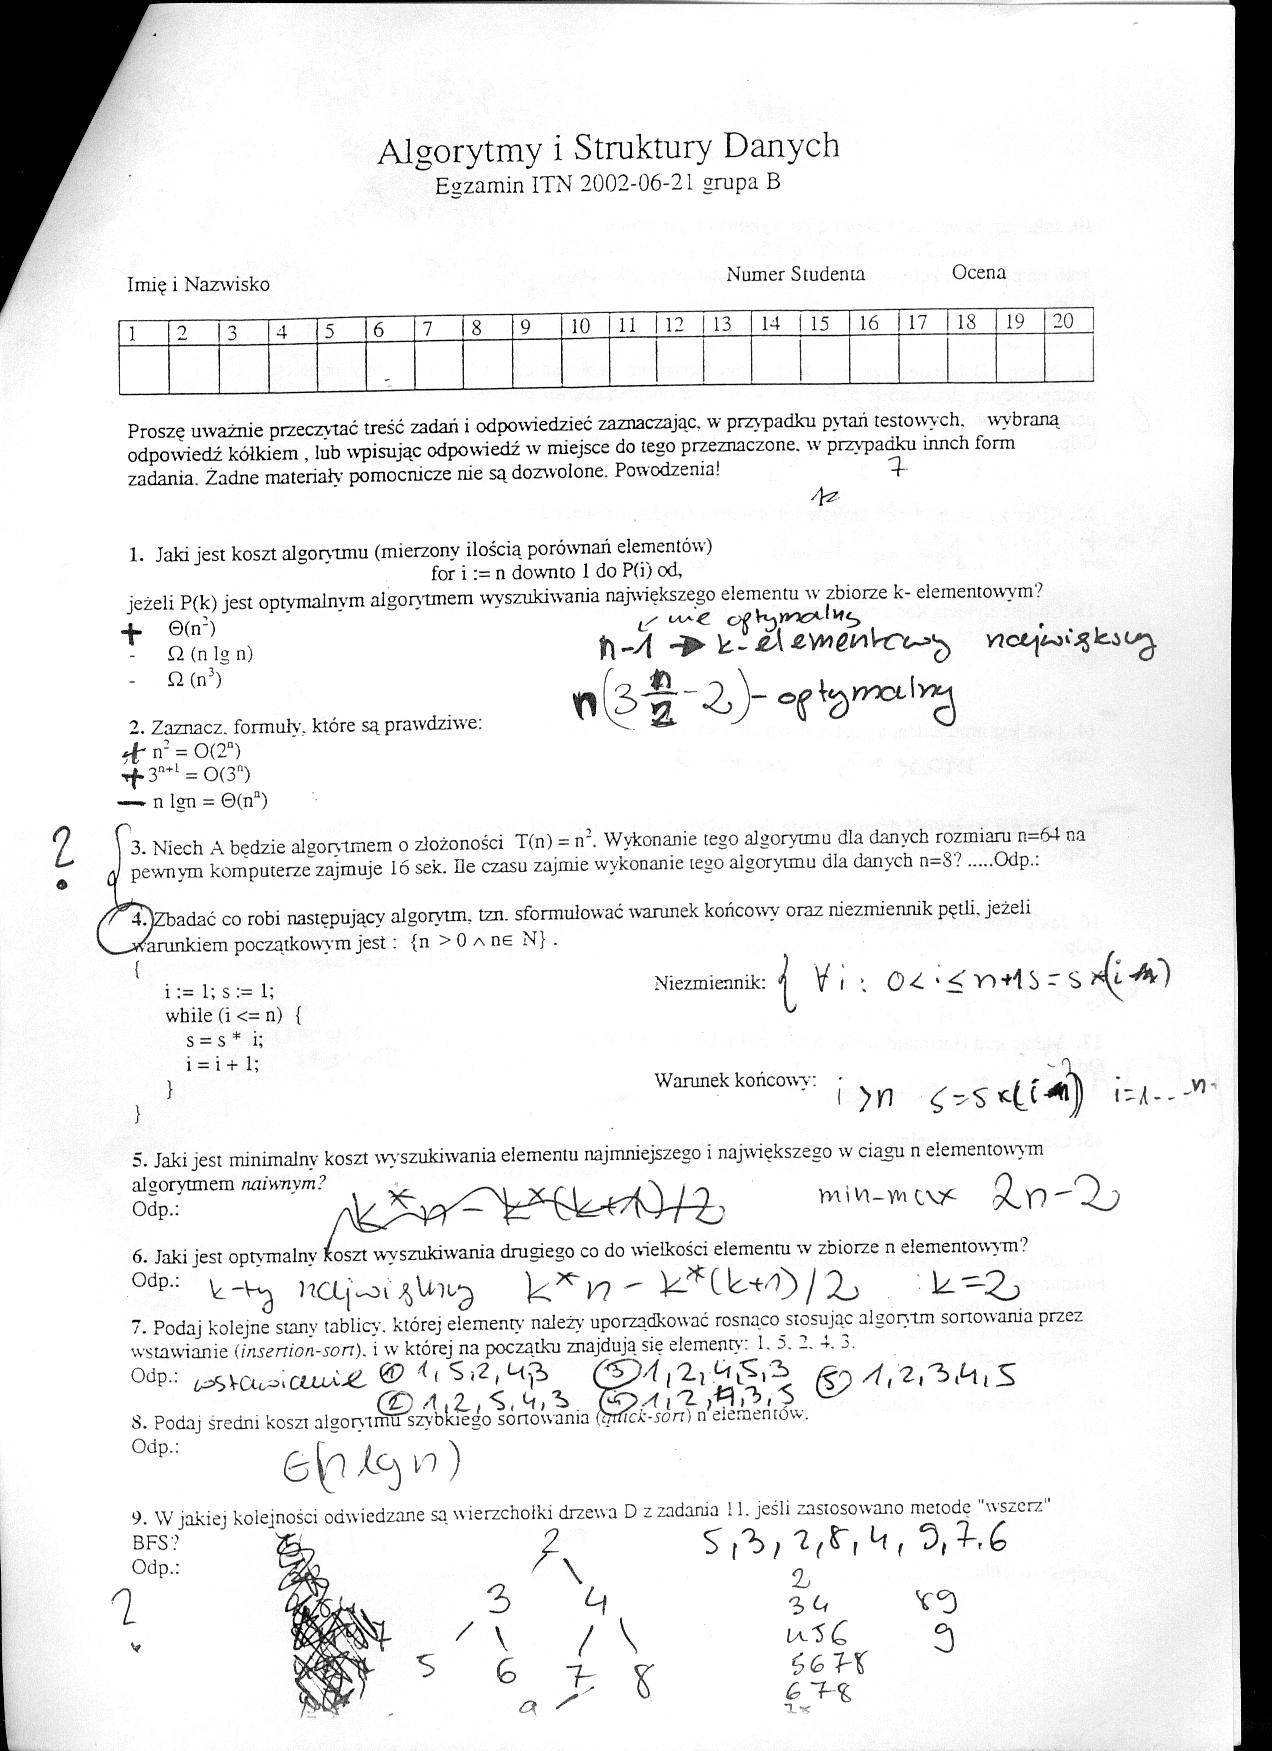 Algorytmy i Struktury Danych
Egzamin ITN 2002-06-21 grupa B
Imię i Nazwisko Numer Studenta Ocena
1 2 3 4 5 6 7 8 9 10 11 12 13 14 15 16 17 18 19 20
Proszę uważnie przeczytać treść zadań i odpowiedzieć zaznaczając, w przypadku pytań testowych, wybraną
odpowiedź kółkiem , lub wpisując odpowiedź w miejsce do tego przeznaczone, w przypadku innch form
zadania. Żadne materiały pomocnicze nie są dozwolone. Powodzenia!
7
1. Jaki jest koszt algorytmu (mierzony ilością porównań elementów)
for i := n downto 1 do P(i) od,
jeżeli P(k) jest optymalnym algorytmem wyszukiwania największego elementu w zbiorze k- elementowym?
+ Θ(n²)
nie optymalny
- Ω (n lg n)
n-1 → k-elementowy największy
- Ω (n³)
n(3 n/2 - 2) - optymalny
2. Zaznacz, formuły, które są prawdziwe:
+ n² = O(2ⁿ)
+ 3ⁿ⁺¹ = O(3ⁿ)
— n lgn = Θ(nⁿ)
?
3. Niech A będzie algorytmem o złożoności T(n) = n². Wykonanie tego algorytmu dla danych rozmiaru n=64 na
pewnym komputerze zajmuje 16 sek. Ile czasu zajmie wykonanie tego algorytmu dla danych n=8? .....Odp.:
4. Zbadać co robi następujący algorytm, tzn. sformułować warunek końcowy oraz niezmiennik pętli, jeżeli
warunkiem początkowym jest : {n > 0 ∧ n∈ N} .
{
i := 1; s := 1;
Niezmiennik: { ∀ i : 0 < i ≤ n+1 s = s
while (i <= n) {
s = s * i;
i = i + 1;
}
Warunek końcowy: i > n s = s i=1...n
}
5. Jaki jest minimalny koszt wyszukiwania elementu najmniejszego i największego w ciągu n elementowym
algorytmem naiwnym?
Odp.: k*n - k*(k+1)/2 min-max 2n-2
6. Jaki jest optymalny koszt wyszukiwania drugiego co do wielkości elementu w zbiorze n elementowym?
Odp.: k-ty największy k*n - k*(k+1)/2 k=2
7. Podaj kolejne stany tablicy, której elementy należy uporządkować rosnąco stosując algorytm sortowania przez
wstawianie (insertion-sort), i w której na początku znajdują się elementy: 1, 5, 2, 4, 3.
Odp.: wstawianie ① 1, 5, 2, 4, 3 ③ 1, 2, 4, 5, 3 ⑤ 1, 2, 3, 4, 5
② 1, 2, 5, 4, 3 ④ 1, 2, 4, 3, 5
8. Podaj średni koszt algorytmu szybkiego sortowania (quick-sort) n elementów.
Odp.:
Θ(n lg n)
9. W jakiej kolejności odwiedzane są wierzchołki drzewa D z zadania 11, jeśli zastosowano metodę "wszerz"
BFS?
2 5, 3, 2, 8, 4, 9, 7, 6
Odp.:
2
3 4
3 4 8 9
?
4 5 6 9
5 6 7 8
5 6 7 8
6 7 8
9